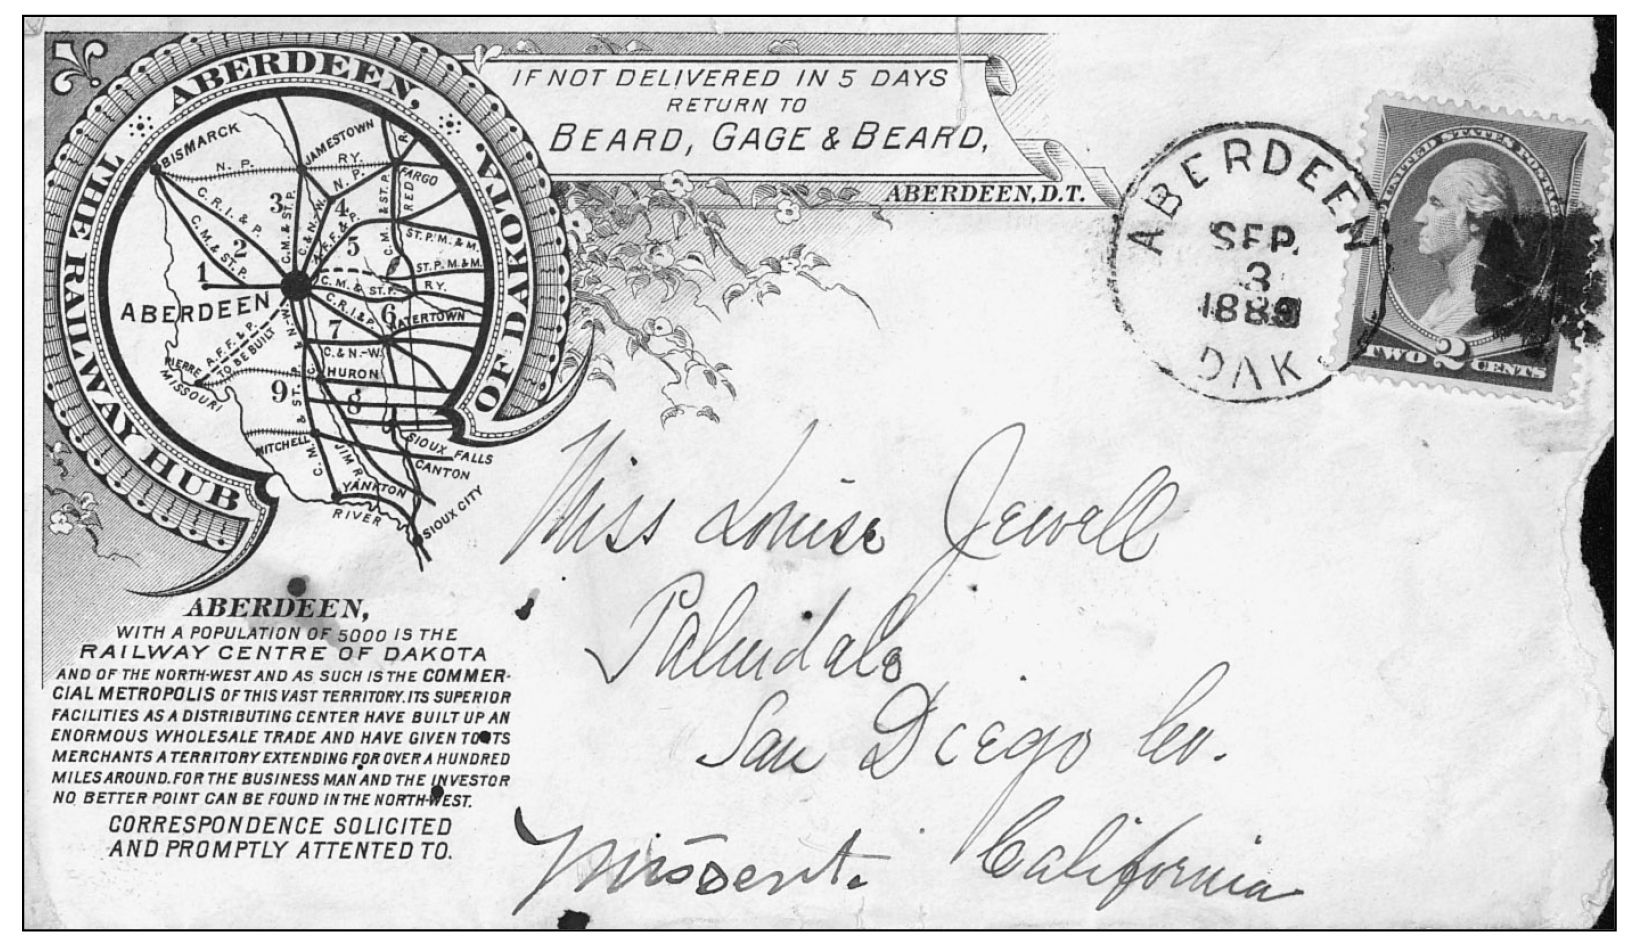 THE RAILWAY HUB
ABERDEEN,
OF DAKOTA.
BISMARCK
JAMESTOWN
N. P. RY.
FARGO
N. P.
RED R.
C. R. I. & P.
C. M. & ST. P.
C. M. & ST. P.
C. & N.-W.
A. F. F. & P.
C. M. & ST. P.
ST. P. M. & M.
ST. P. M. & M.
RY.
1
2
3
4
5
6
7
8
9
ABERDEEN
C. M. & ST. P.
C. R. I. & P.
WATERTOWN
A. F. F. & P.
TO BE BUILT
C. & N.-W.
PIERRE
HURON
MISSOURI
MITCHELL
C. M. & ST. P.
JIM R.
SIOUX FALLS
CANTON
YANKTON
RIVER
SIOUX CITY
IF NOT DELIVERED IN 5 DAYS
RETURN TO
BEARD, GAGE & BEARD,
ABERDEEN, D.T.
ABERDEEN
SEP.
3
DAK
UNITED STATES POSTAGE
TWO 2 CENTS
Miss Louise Jewell
Palmdale
San Diego Co.
California
Missent.
ABERDEEN,
WITH A POPULATION OF 5000 IS THE
RAILWAY CENTRE OF DAKOTA
AND OF THE NORTH-WEST AND AS SUCH IS THE COMMER-
CIAL METROPOLIS OF THIS VAST TERRITORY. ITS SUPERIOR
FACILITIES AS A DISTRIBUTING CENTER HAVE BUILT UP AN
ENORMOUS WHOLESALE TRADE AND HAVE GIVEN TO ITS
MERCHANTS A TERRITORY EXTENDING FOR OVER A HUNDRED
MILES AROUND. FOR THE BUSINESS MAN AND THE INVESTOR
NO BETTER POINT CAN BE FOUND IN THE NORTH-WEST.
CORRESPONDENCE SOLICITED
AND PROMPTLY ATTENTED TO.